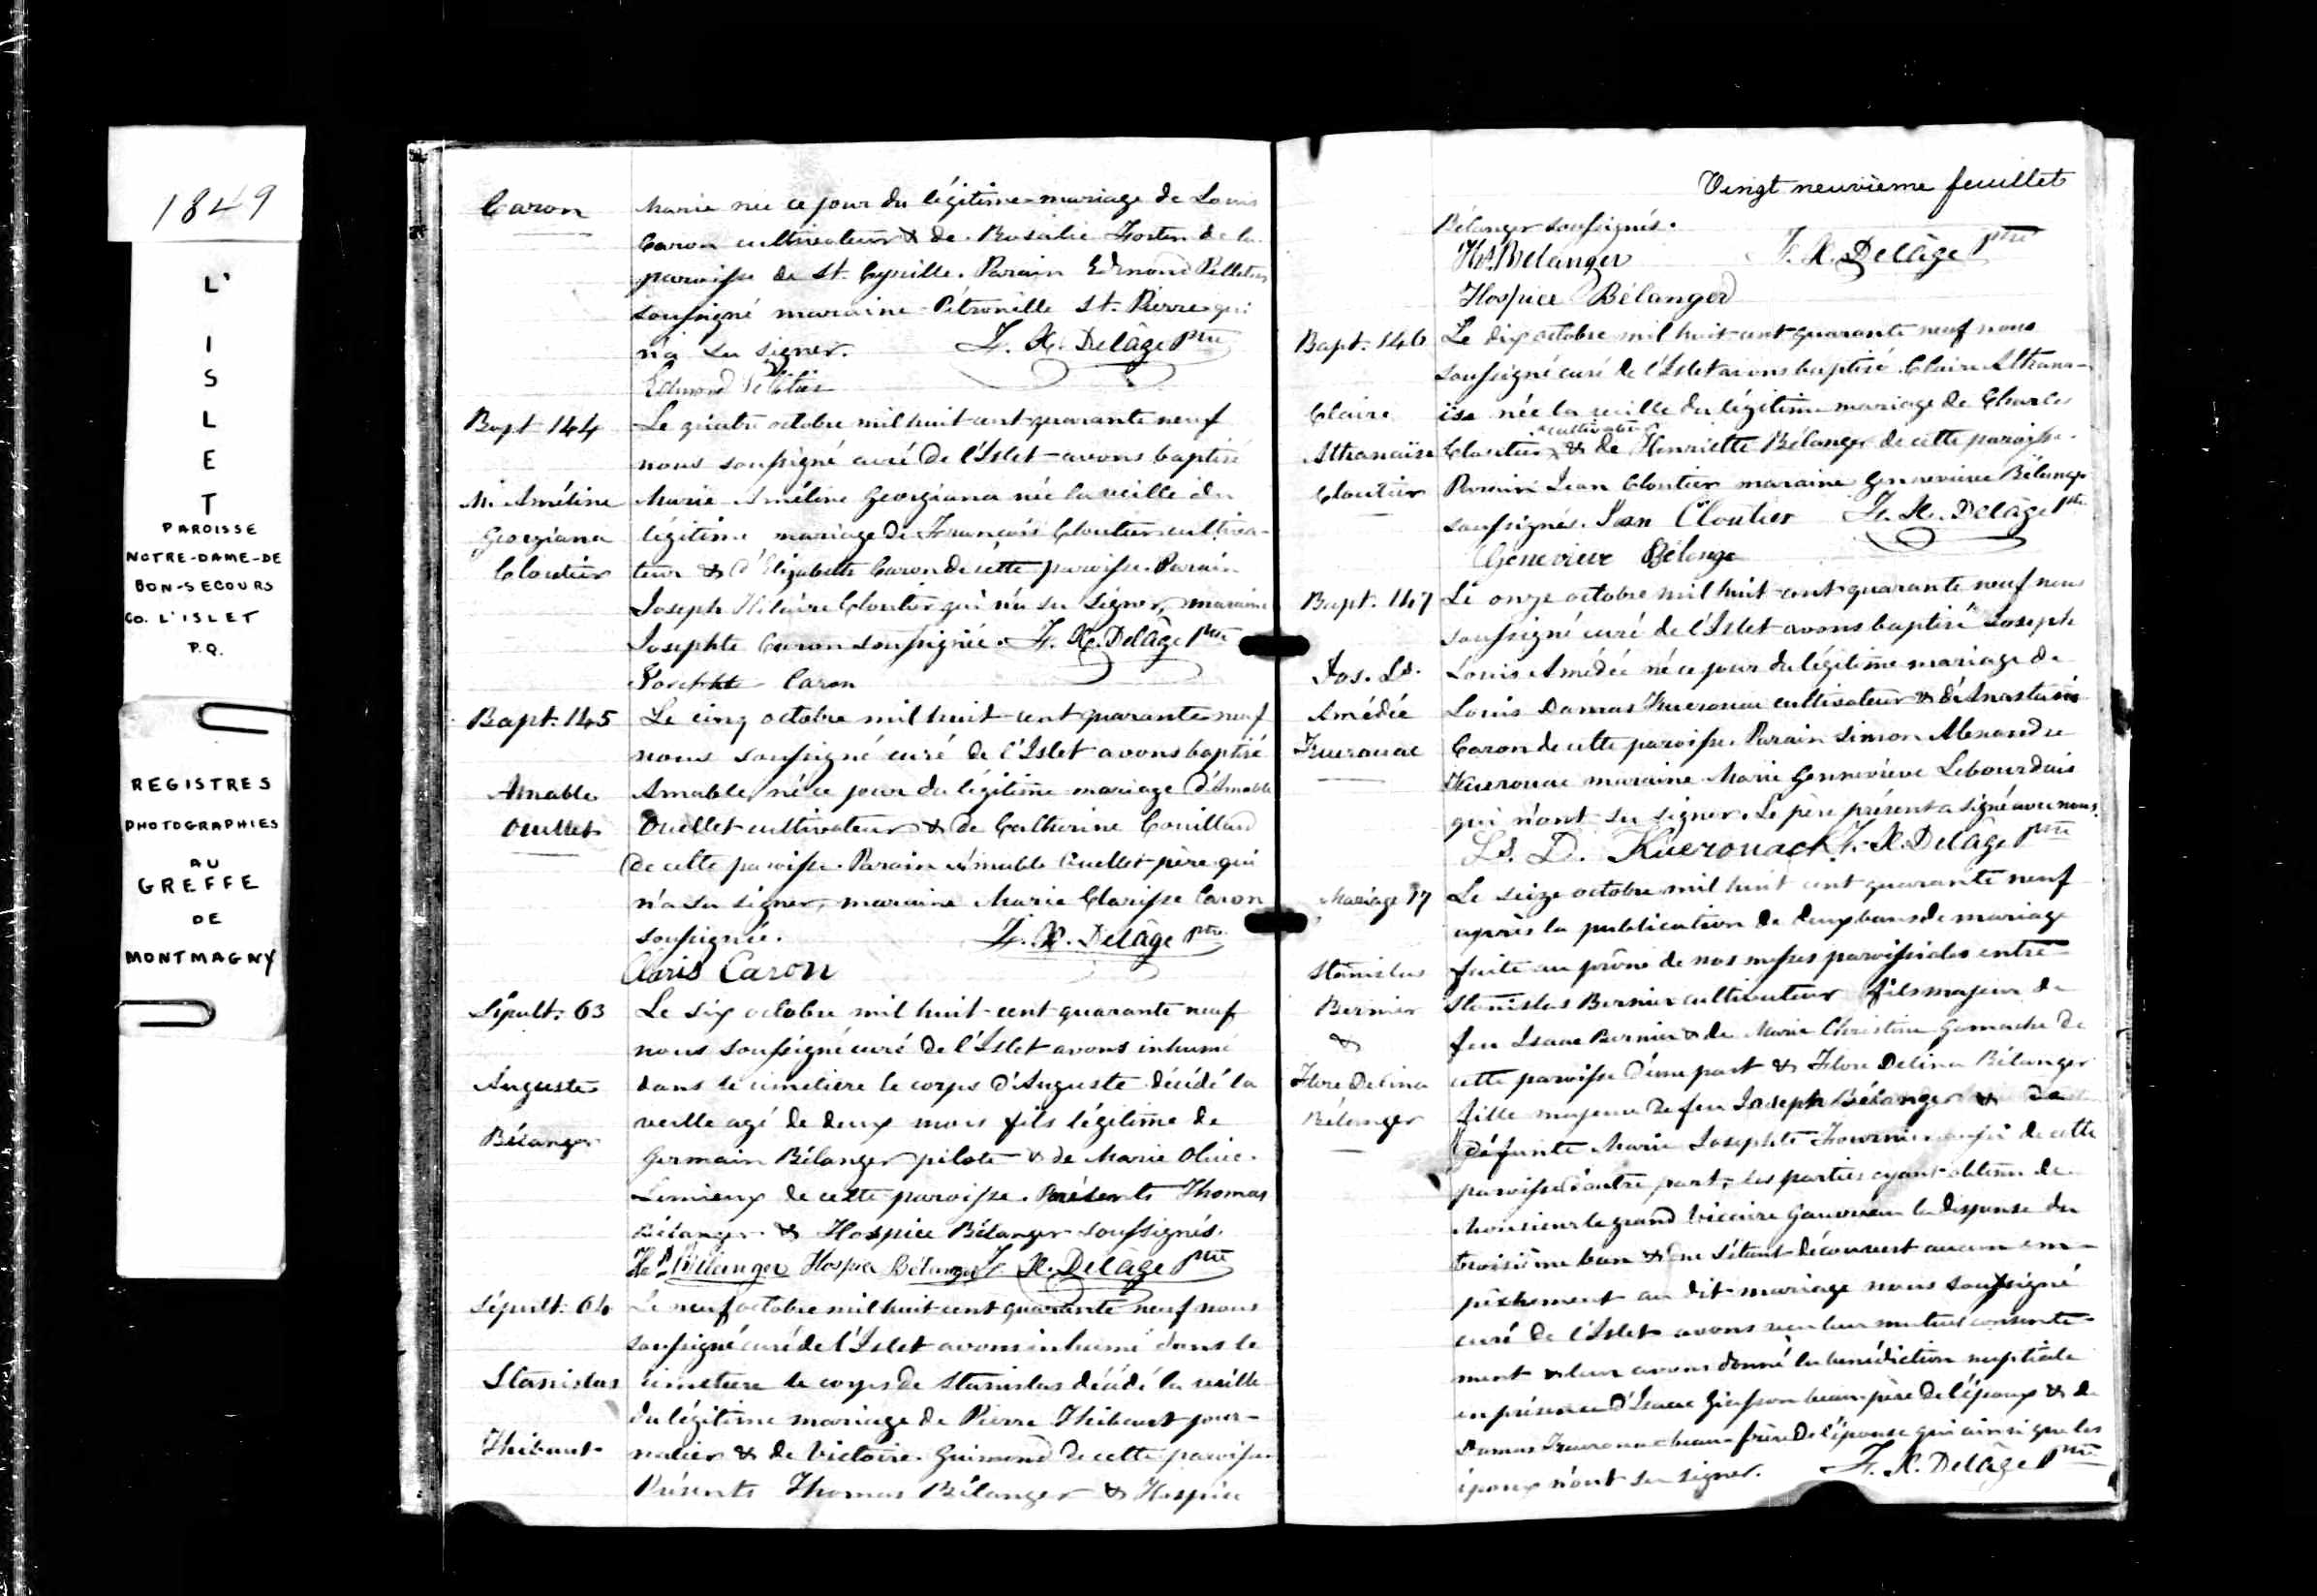 1849
L'
I
S
L
E
T
PAROISSE
NOTRE-DAME-DE
BON-SECOURS
CO. L'ISLET
P.Q.
REGISTRES
PHOTOGRAPHIES
AU
GREFFE
DE
MONTMAGNY
Caron
Marie née ce jour du légitime mariage de Louis
Caron cultivateur & de Rosalie Fortin de la
paroisse de St. Cyrille. Parain Edmond Pelletier
soussigné maraine Pétronille St. Pierre qui
n'a su signer. F. X. Delâge Ptre
Edmond Pelletier
Bapt. 144
M. Améline
Georgiana
Cloutier
Le quatre octobre mil huit-cent-quarante neuf
nous soussigné curé de l'Islet avons baptisé
Marie Améline Georgiana née la veille du
légitime mariage de François Cloutier cultiva-
teur & d'Elizabeth Caron de cette paroisse. Parain
Joseph Hilaire Cloutier qui n'a su signer, maraine
Josephte Caron soussignée. F. X. Delâge Ptre
Josephte Caron
Bapt. 145
Amable
Ouellet
Le cinq octobre mil huit-cent quarante neuf
nous soussigné curé de l'Islet avons baptisé
Amable, né ce jour du légitime mariage d'Amable
Ouellet cultivateur & de Catherine Couillard
de cette paroisse. Parain Amable Ouellet père qui
n'a su signer, maraine Marie Clarisse Caron
soussignée. F. X. Delâge Ptre
Claris Caron
Sépult. 63
Auguste
Bélanger
Le six octobre mil huit-cent quarante neuf
nous soussigné curé de l'Islet avons inhumé
dans le cimetière le corps d'Auguste décédé la
veille agé de deux mois fils légitime de
Germain Bélanger pilote & de Marie Olive
Lemieux de cette paroisse. Présents Thomas
Bélanger & Hospice Bélanger soussignés.
Bélanger Hospice Bélanger F. X. Delâge Ptre
Sépult. 64
Stanislas
Thibaut
Le neuf octobre mil huit cent quarante neuf nous
soussigné curé de l'Islet avons inhumé dans le
cimetière le corps de Stanislas décédé la veille
du légitime mariage de Pierre Thibaut jour-
nalier & de Victoire Guimond de cette paroisse
Présents Thomas Bélanger & Hospice
Vingt neuvième feuillet
Bélanger soussignés.
Bélanger F. X. Delâge Ptre
Hospice Bélanger
Bapt. 146
Claire
Atthanaïse
Cloutier
Le dix octobre mil huit-cent-quarante neuf nous
soussigné curé de l'Islet avons baptisé Claire Atthana-
ïse née la veille du légitime mariage de Charles
cultivateur
Cloutier & de Henriette Bélanger de cette paroisse.
Parain Jean Cloutier maraine Gennevieve Bélanger
soussignés. Jean Cloutier F. X. Delâge Ptre
Genevieve Bélange
Bapt. 147
Jos. Ls.
Amédée
Kuerouac
Le onze octobre mil huit-cent-quarante neuf nous
soussigné curé de l'Islet avons baptisé Joseph
Louis Amédée né ce jour du légitime mariage de
Louis Damas Kuerouac cultivateur & d'Anastasie
Caron de cette paroisse. Parain Simon Alexandre
Kuerouac maraine Marie Gennevieve Lebourdais
qui n'ont su signer. Le père présent a signé avec nous.
Ls. D. Kuerouack F. X. Delâge Ptre
Mariage 17
Stanislas
Bernier
&
Flore Delina
Bélanger
Le seize octobre mil huit cent quarante neuf
après la publication de deux bans de mariage
faite au prône de nos messes paroissiales entre
Stanislas Bernier cultivateur fils majeur de
feu Isaac Bernier & de Marie Christine Gamache de
cette paroisse d'une part & Flore Delina Bélanger
fille majeure de feu Joseph Bélanger & de
défunte Marie Josephte Fournier aussi de cette
paroisse d'autre part; les parties ayant obtenu de
Monsieur le grand Vicaire Gauvreau la dispense du
troisième ban & ne s'étant découvert aucun em-
pêchement au dit mariage nous soussigné
curé de l'Islet avons reçu leur mutuel consente-
ment & leur avons donné la bénédiction nuptiale
en présence d'Isaac Giasson beau-père de l'époux & de
Damas Kuerouac beau-frère de l'épouse qui ainsi que les
époux n'ont su signer. F. X. Delâge Ptre